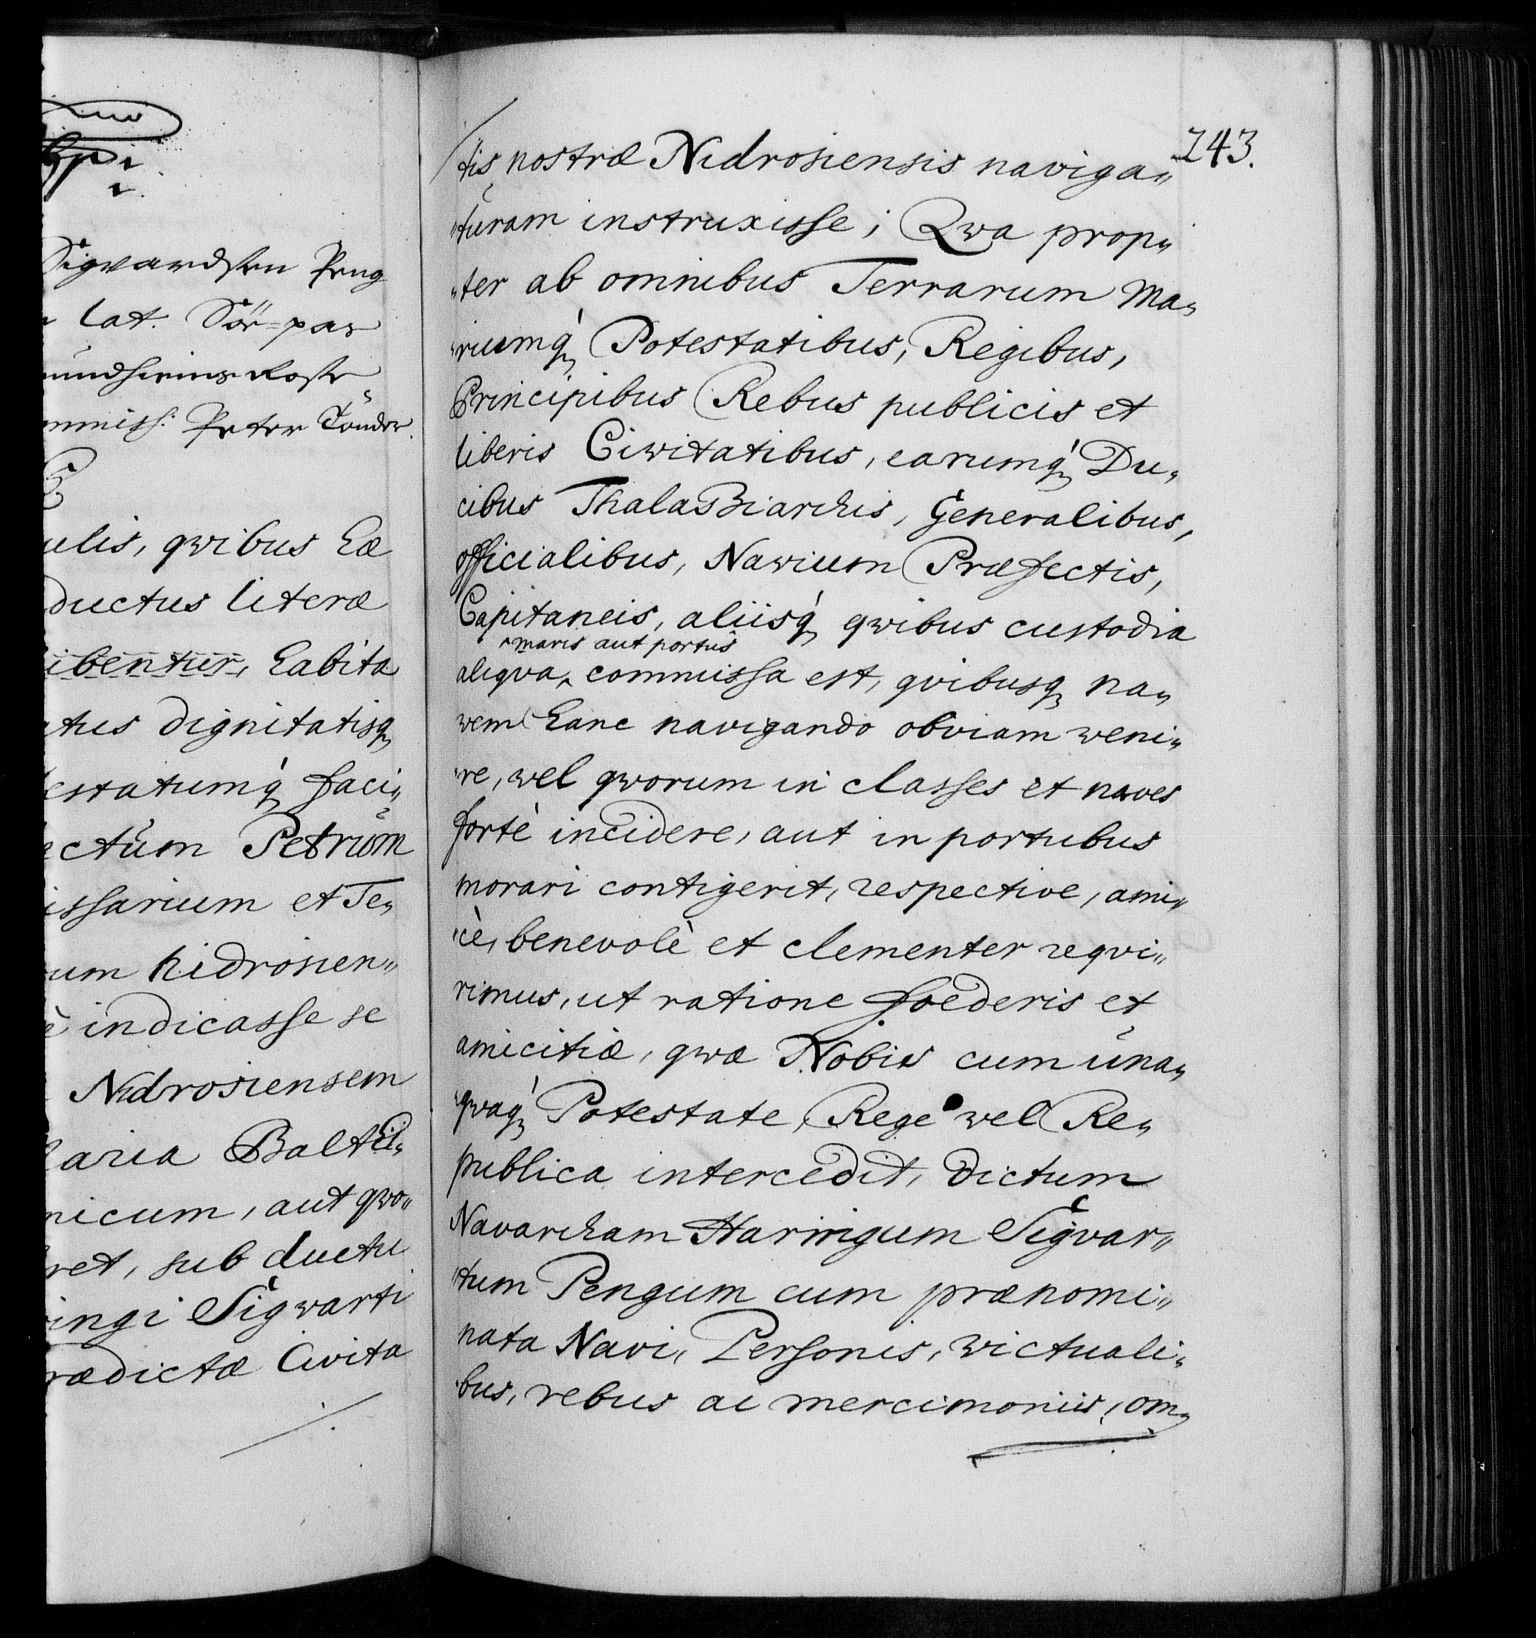 Sigvardsen Peng
lat. Söe-pas
Peter Tonder
ulis, qvibus hæ
ductus literæ
ibentur, habita
tus dignitatisq
estatumq́ faci„
ectum Petrum
issarium et Te„
um hidrosien„
è indicasse se
Nidrosiensem
aria Balthi„
nicum, aut qvo„
ret, sub ductu
ingi Sigvarti
rædictæ Civita
243.
tis nostræ Nidrosiensis naviga„
„turam instruxisse; Qva prop„
„ter ab omnibus Terrarum Ma„
„riumq́ Potestatibus, Regibus,
Principibus Rebus publicis et
liberis Civitatibus, earumq́ Du„
cibus Thalassiarchis, Generalibus,
officialibus, Navium Præfectis,
Capitaneis, aliisq́ qvibus custodia
maris aut portus
aliqva commissa est, qvibusq na„
vem hanc navigando obviam veni„
„re, vel qvorum in classes et naves
fortè incidere, aut in portubus
morari contigerit, respective, ami„
„cè, benevolè et clementer reqvi„
rimus, ut ratione foederis et
amicitiæ, qvæ Nobis cum una„
qvaq́ Potestate, Rege vel Re„
publica intercedit, dictum
Navarcham Harringum Sigvar„
„tum Pengum cum prænomi„
nata Navi, Personis, victuali„
„bus, rebus ac mercimoniis, om„